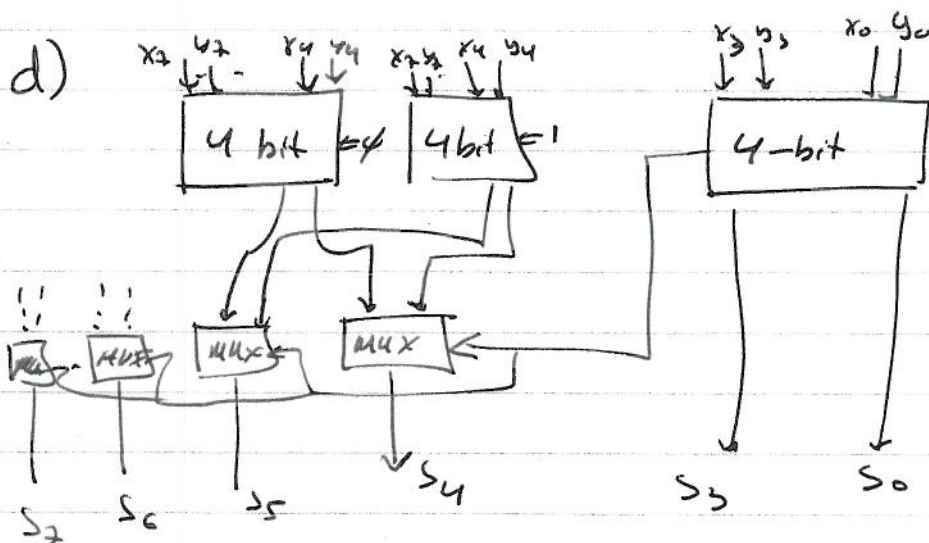 d)
x7 y7 x4 y4 x7 y7 x4 y4 x3 y3 x0 y0
4 bit =0 4bit =1 4-bit
mux mux mux
S7 S6 S5 S4 S3 S0